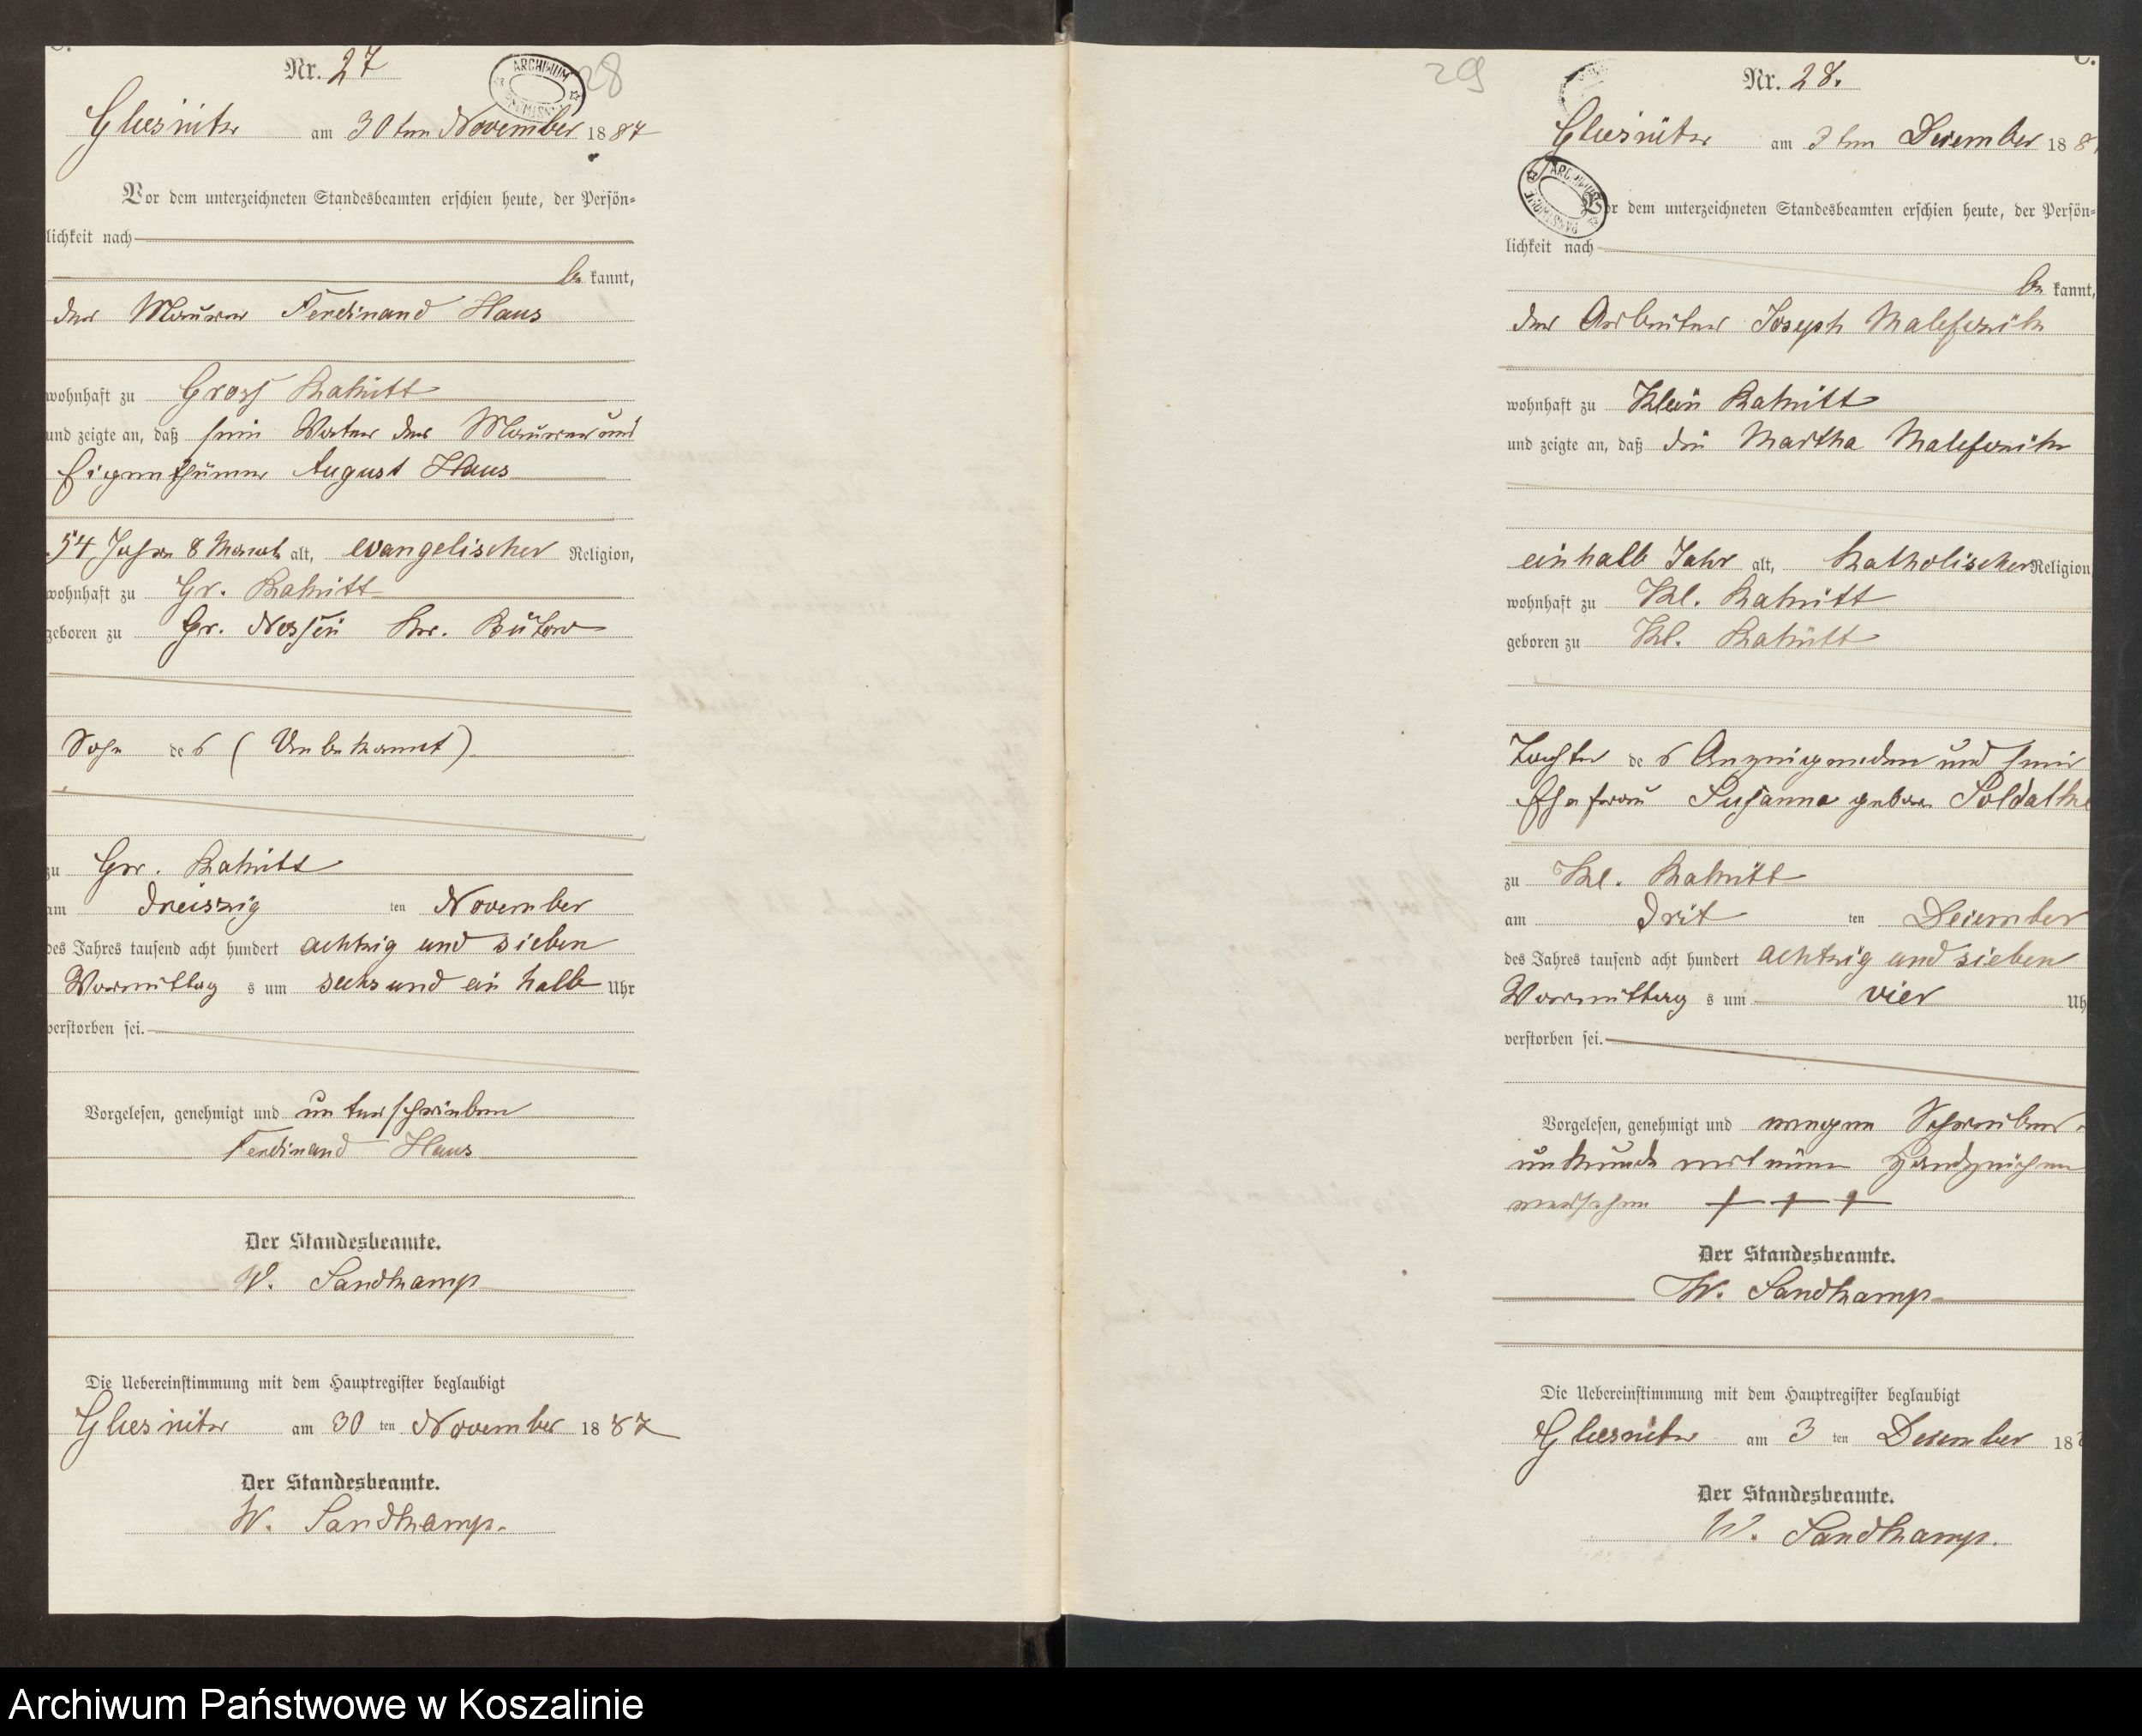 Nr. 27
28
ARCHIWUM
Gliesnitz am 30ten November 1887
Vor dem unterzeichneten Standesbeamten erschien heute, der Persön-
lichkeit nach
be kannt,
der Maurer Ferdinand Haus
wohnhaft zu Gross Rakitt
und zeigte an, daß sein Vater der Maurer und
Eigenthümer August Haus
54 Jahre 8 Monat alt, evangelischer Religion,
wohnhaft zu Gr. Rakitt
geboren zu Gr. Nossin Kr. Bütow
Sohn des (Unbekannt)
zu Gr. Rakitt
am dreiszig ten November
des Jahres tausend acht hundert achtzig und sieben
Vormittag s um sechs und ein halb Uhr
verstorben sei.
Vorgelesen, genehmigt und unterschrieben
Ferdinand Haus
Der Standesbeamte.
W. Sandkamp
Die Uebereinstimmung mit dem Hauptregister beglaubigt
Gliesnitz am 30 ten November 1887
Der Standesbeamte.
W. Sandkamp.
29
Nr. 28.
Gliesnitz am 3ten Dezember 188
ARCHIWUM
Vor dem unterzeichneten Standesbeamten erschien heute, der Persön-
lichkeit nach
be kannt,
der Arbeiter Joseph
wohnhaft zu Klein Rakitt
und zeigte an, daß die Martha
ein halb Jahr alt, katholischer Religion
wohnhaft zu Kl. Rakitt
geboren zu Kl. Rakitt
Tochter des Anzeigenden und seiner
Ehefrau Susanna geboren Soldatke
zu Kl. Rakitt
am drit ten Dezember
des Jahres tausend acht hundert achtzig und sieben
Vormittag s um vier Uh
verstorben sei.
Vorgelesen, genehmigt und wegen Schreibens-
unkunde mit einem Handzeichen
versehen + + +
Der Standesbeamte.
W. Sandkamp
Die Uebereinstimmung mit dem Hauptregister beglaubigt
Gliesnitz am 3 ten Dezember 188
Der Standesbeamte.
W. Sandkamp.
Archiwum Państwowe w Koszalinie